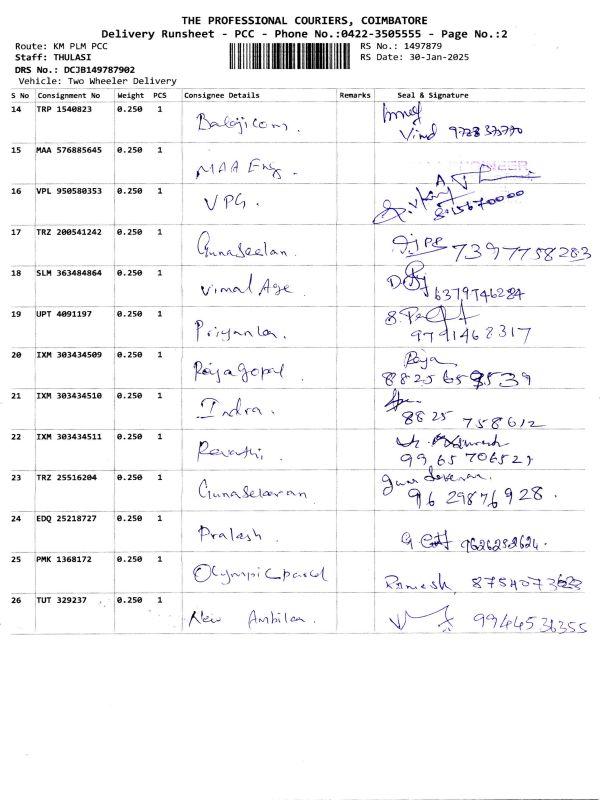 THE PROFESSIONAL COURIERS, COIMBATORE
Delivery Runsheet - PCC - Phone No.:0422-3505555 - Page No.:2
Route: KM PLM PCC RS No.: 1497879
Staff: THULASI RS Date: 30-Jan-2025
DRS No.: DCJB149787902
Vehicle: Two Wheeler Delivery
S No Consignment No Weight PCS Consignee Details Remarks Seal & Signature
14 TRP 1540823 0.250 1 Balaji com.
Vind
15 MAA 576885645 0.250 1 MAA Eng.
16 VPL 950580353 0.250 1 VPG.
17 TRZ 200541242 0.250 1 Gunaseelan. 7397758283
18 SLM 363484864 0.250 1 Vimal Age
19 UPT 4091197 0.250 1 Priyanka.
9791468317
20 IXM 303434509 0.250 1 Rajagopal. Raja
21 IXM 303434510 0.250 1 Indra.
8825 758612
22 IXM 303434511 0.250 1 Revathi.
9965706521
23 TRZ 25516204 0.250 1 Gunaseelan.
96 29876928.
24 EDQ 25218727 0.250 1 Prakash. 9626252624.
25 PMK 1368172 0.250 1 Olympic parcel Ramesh
26 TUT 329237 0.250 1 New Ambika. 9944536355